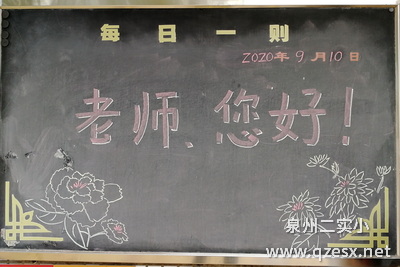 每日一则
2020年9月10日
老师、您好！
泉州二实小
www.qzesx.net